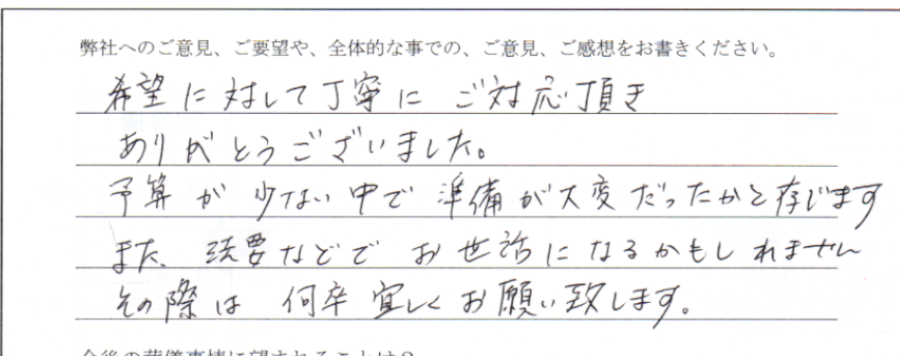 弊社へのご意見、ご要望や、全体的な事での、ご意見、ご感想をお書きください。
希望に対して丁寧にご対応頂き
ありがとうございました。
予算が少ない中で準備が大変だったかと存じます
また、法要などでお世話になるかもしれません
その際は何卒宜しくお願い致します。
今後の葬儀事情に望まれることは？